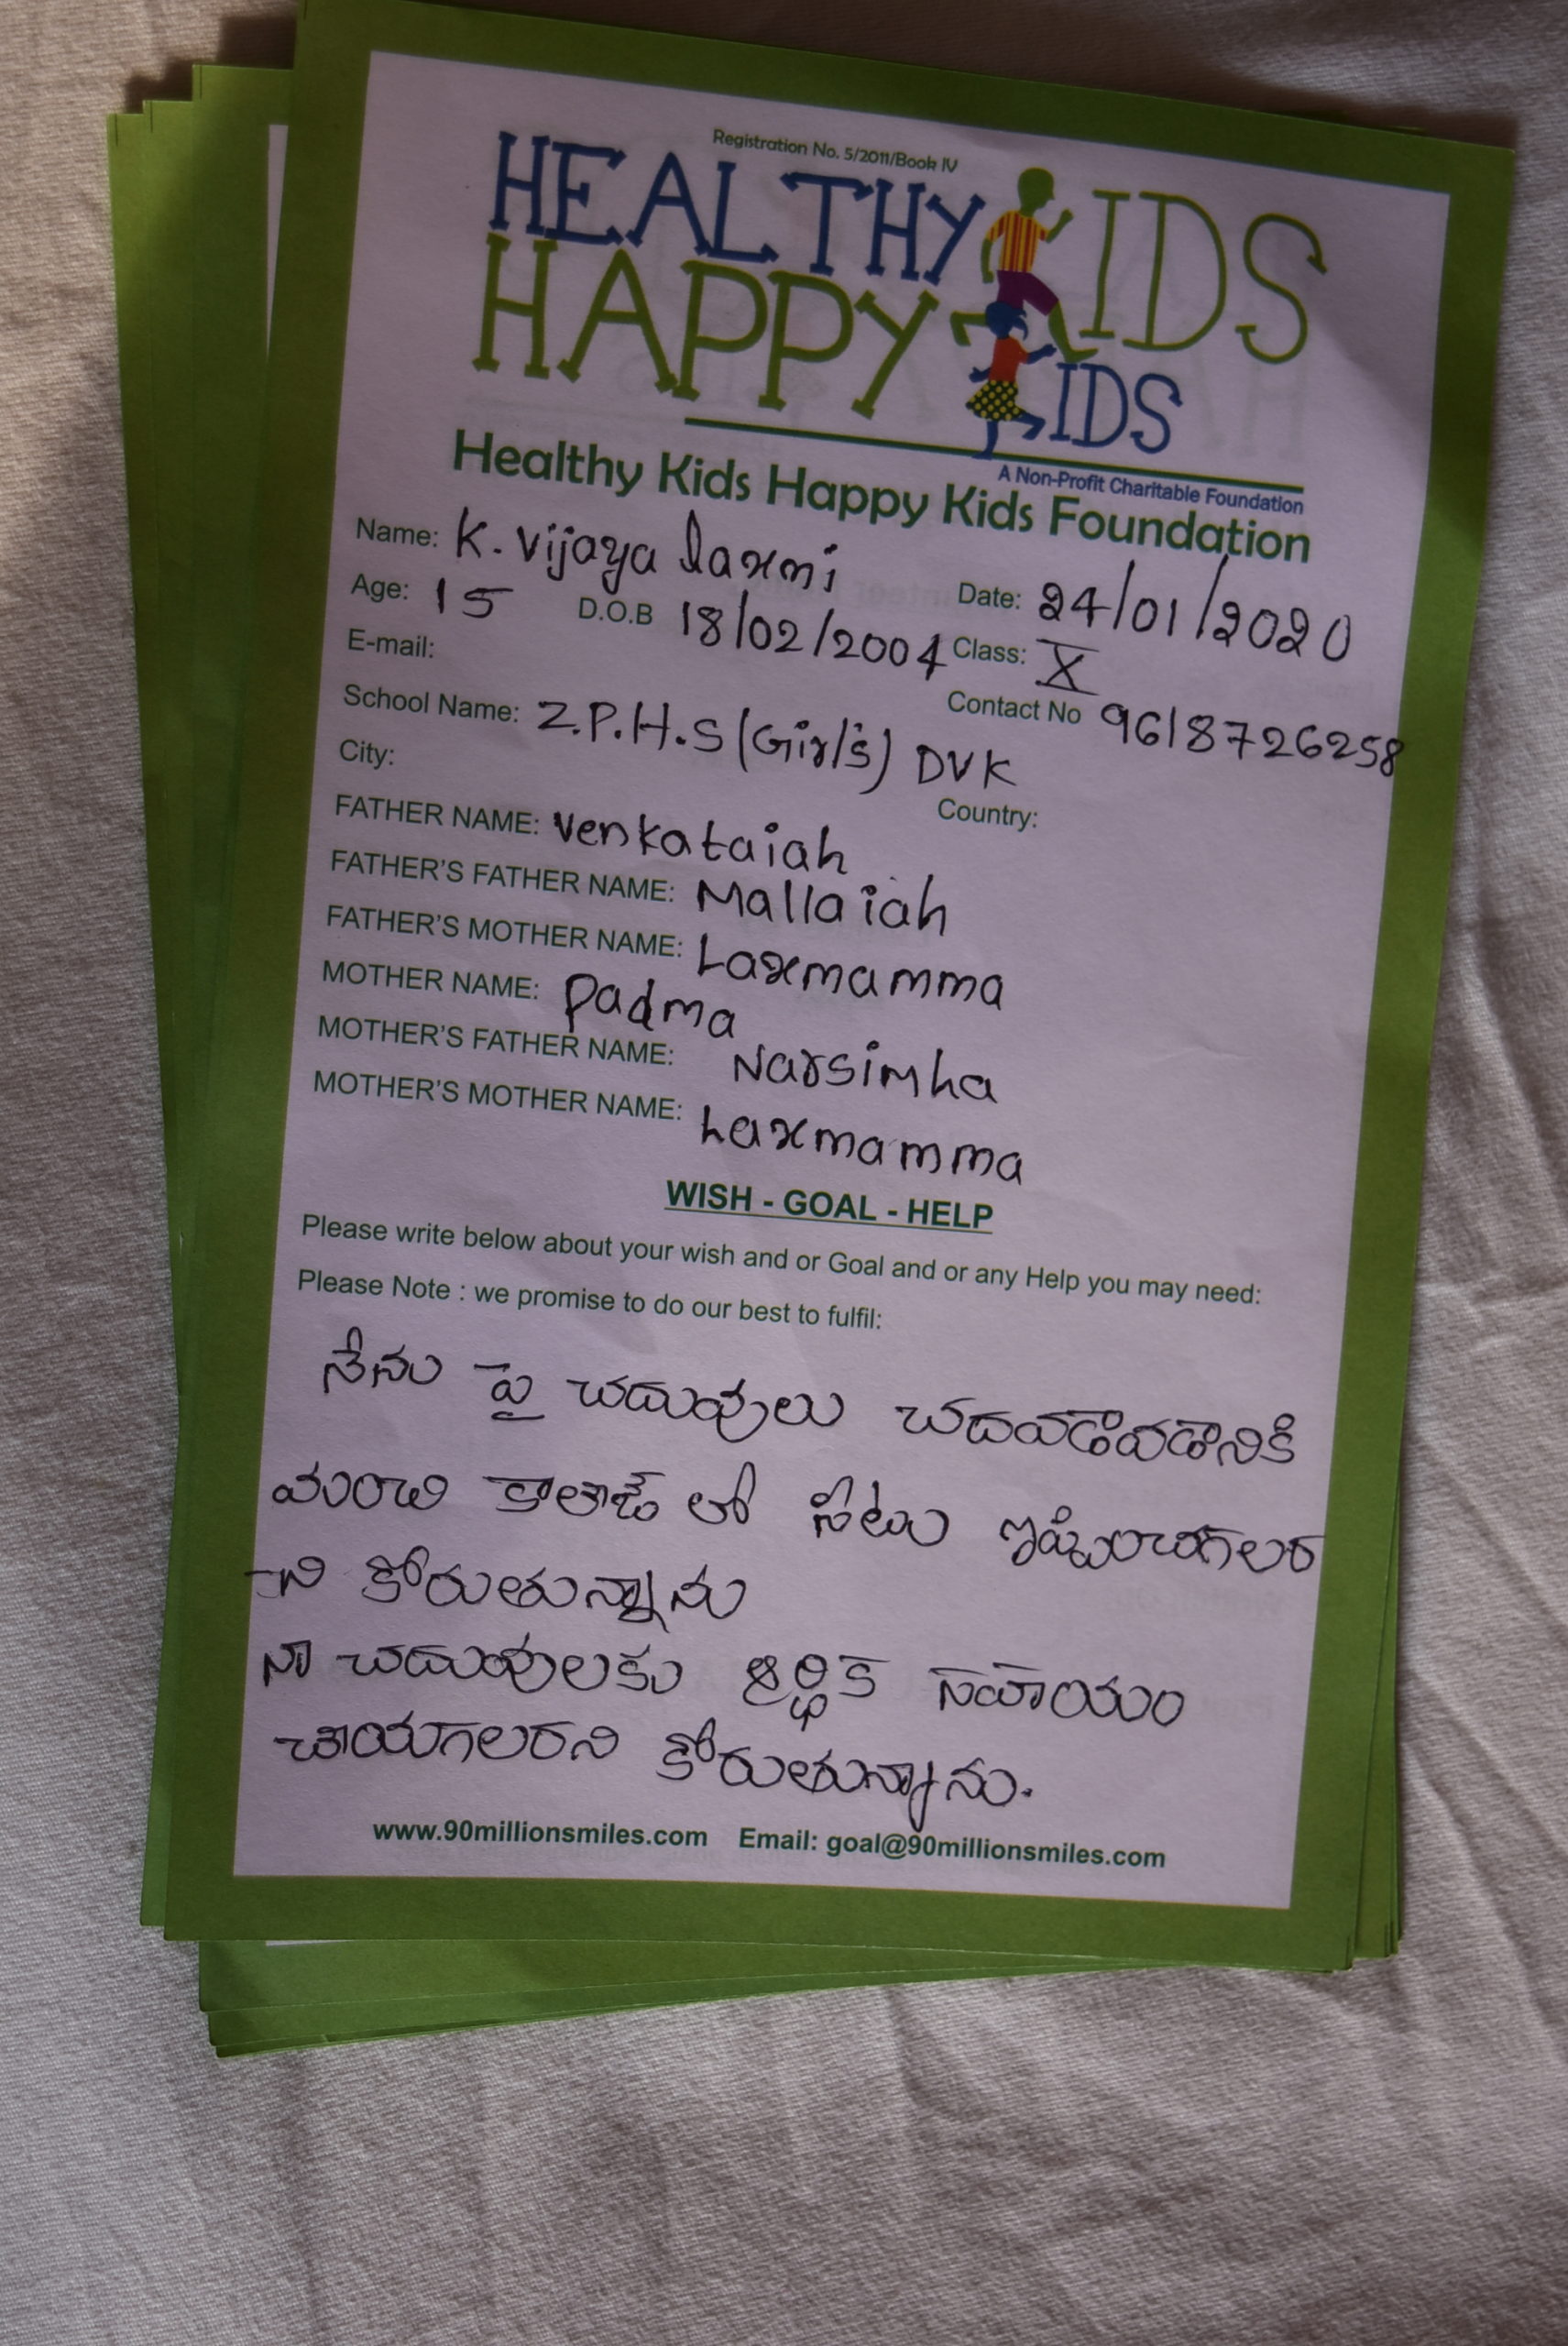 Registration No. 5/2011/Book IV
HEALTHY KIDS
HAPPY KIDS
A Non-Profit Charitable Foundation
Healthy Kids Happy Kids Foundation
Name: K. Vijaya laxmi Date: 24/01/2020
Age: 15 D.O.B 18/02/2004 Class: X
E-mail: Contact No 9618726258
School Name: Z.P.H.S (Girl's) DVK
City: Country:
FATHER NAME: Venkataiah
FATHER'S FATHER NAME: Mallaiah
FATHER'S MOTHER NAME: Laxmamma
MOTHER NAME: Padma
MOTHER'S FATHER NAME: Narsimha
MOTHER'S MOTHER NAME: Laxmamma
WISH - GOAL - HELP
Please write below about your wish and or Goal and or any Help you may need:
Please Note : we promise to do our best to fulfil:
నేను పై చదువులు చదవడావడానికి
మంచి కాలేజ్ లో సీటు ఇప్పించగలర
-ని కోరుతున్నాను
నా చదువులకు ఆర్థిక సహాయం
చాయగలరని కోరుతున్నాను.
www.90millionsmiles.com Email: goal@90millionsmiles.com